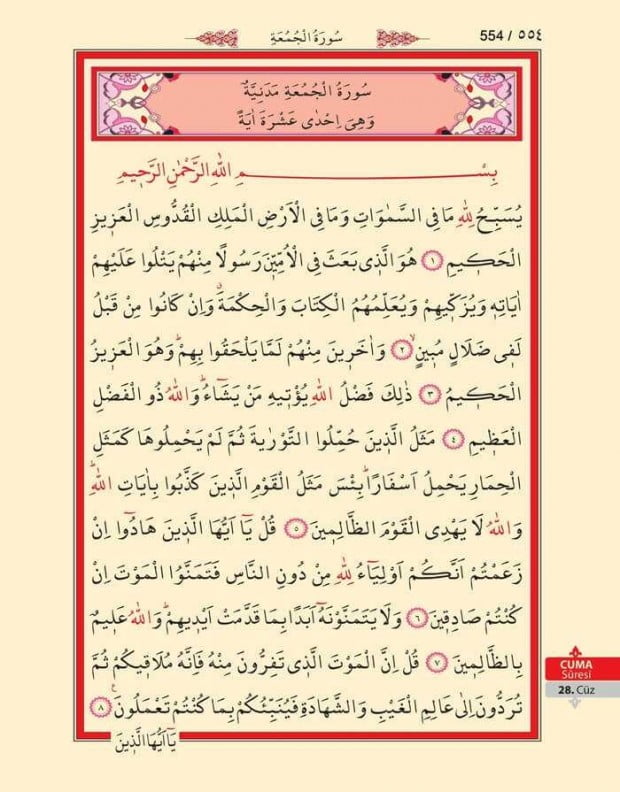 554 / ٥٥٤
سُورَةُ الْجُمُعَةِ
سُورَةُ الْجُمُعَةِ مَدَنِيَّةٌ
وَهِىَ اِحْدٰى عَشْرَةَ اٰيَةً
بِسْمِ اللّٰهِ الرَّحْمٰنِ الرَّحٖيمِ
يُسَبِّحُ لِلّٰهِ مَا فِى السَّمٰوَاتِ وَمَا فِى الْاَرْضِ الْمَلِكِ الْقُدُّوسِ الْعَزٖيزِ
الْحَكٖيمِ ﴿١﴾ هُوَ الَّذٖى بَعَثَ فِى الْاُمِّيّٖنَ رَسُولًا مِنْهُمْ يَتْلُوا عَلَيْهِمْ
اٰيَاتِهٖ وَيُزَكّٖيهِمْ وَيُعَلِّمُهُمُ الْكِتَابَ وَالْحِكْمَةَۗ وَاِنْ كَانُوا مِنْ قَبْلُ
لَفٖى ضَلَالٍ مُبٖينٍۙ ﴿٢﴾ وَاٰخَرٖينَ مِنْهُمْ لَمَّا يَلْحَقُوا بِهِمْۜ وَهُوَ الْعَزٖيزُ
الْحَكٖيمُ ﴿٣﴾ ذٰلِكَ فَضْلُ اللّٰهِ يُؤْتٖيهِ مَنْ يَشَٓاءُۜ وَاللّٰهُ ذُو الْفَضْلِ
الْعَظٖيمِ ﴿٤﴾ مَثَلُ الَّذٖينَ حُمِّلُوا التَّوْرٰيةَ ثُمَّ لَمْ يَحْمِلُوهَا كَمَثَلِ
الْحِمَارِ يَحْمِلُ اَسْفَارًاۜ بِئْسَ مَثَلُ الْقَوْمِ الَّذٖينَ كَذَّبُوا بِاٰيَاتِ اللّٰهِۜ
وَاللّٰهُ لَا يَهْدِى الْقَوْمَ الظَّالِمٖينَ ﴿٥﴾ قُلْ يَٓا اَيُّهَا الَّذٖينَ هَادُٓوا اِنْ
زَعَمْتُمْ اَنَّكُمْ اَوْلِيَٓاءُ لِلّٰهِ مِنْ دُونِ النَّاسِ فَتَمَنَّوُا الْمَوْتَ اِنْ
كُنْتُمْ صَادِقٖينَ ﴿٦﴾ وَلَا يَتَمَنَّوْنَهُٓ اَبَدًا بِمَا قَدَّمَتْ اَيْدٖيهِمْۜ وَاللّٰهُ عَلٖيمٌ
بِالظَّالِمٖينَ ﴿٧﴾ قُلْ اِنَّ الْمَوْتَ الَّذٖى تَفِرُّونَ مِنْهُ فَاِنَّهُ مُلَاقٖيكُمْ ثُمَّ
تُرَدُّونَ اِلٰى عَالِمِ الْغَيْبِ وَالشَّهَادَةِ فَيُنَبِّئُكُمْ بِمَا كُنْتُمْ تَعْمَلُونَ۟ ﴿٨﴾
يَٓا اَيُّهَا الَّذٖينَ
CUMA
Sûresi
28. Cüz